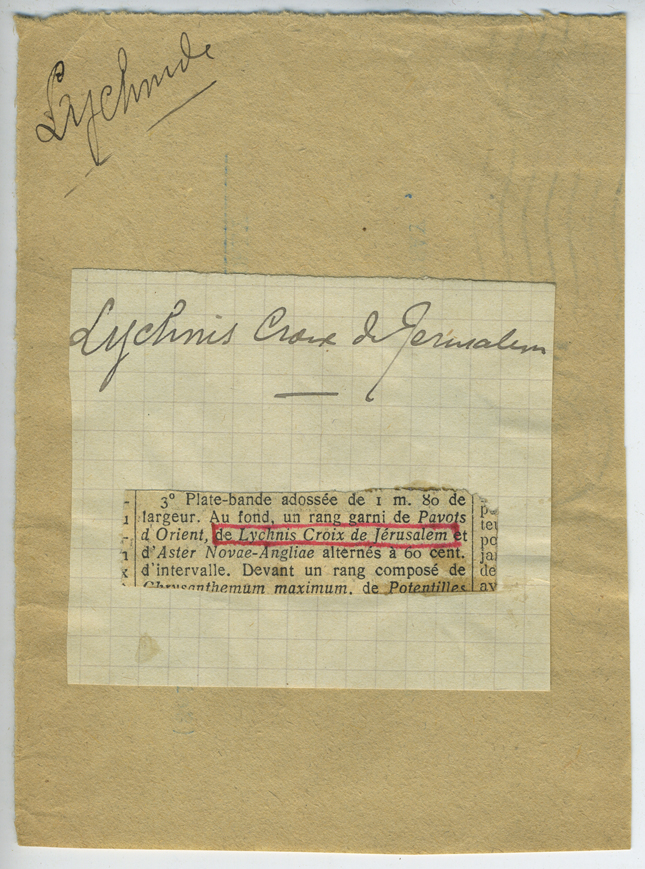 Lychnide
Lychnis Croix de Jérusalem
3° Plate-bande adossée de 1 m. 80 de
largeur. Au fond, un rang garni de Pavots
d'Orient, de Lychnis Croix de Jérusalem et
d'Aster Novae-Angliae alternés à 60 cent.
d'intervalle. Devant un rang composé de
Chrysanthemum maximum, de Potentilles